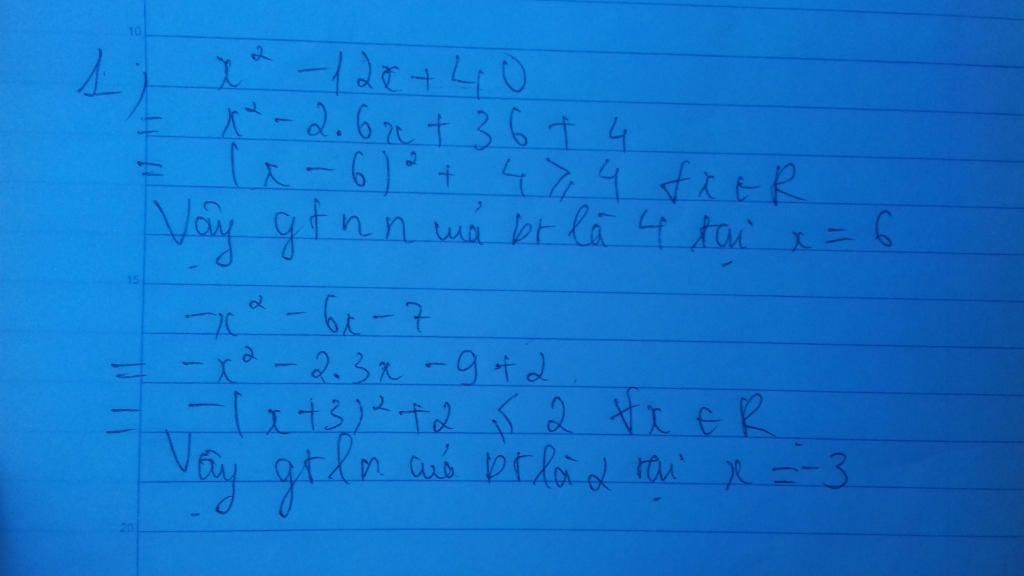 10
1) x² - 12x + 40
= x² - 2.6x + 36 + 4
= (x - 6)² + 4 ⩾ 4 ∀x ∈ R
Vậy gtnn của bt là 4 tại x = 6
15
-x² - 6x - 7
= -x² - 2.3x - 9 + 2
= -(x + 3)² + 2 ⩽ 2 ∀x ∈ R
Vậy gtln của bt là 2 tại x = -3
20